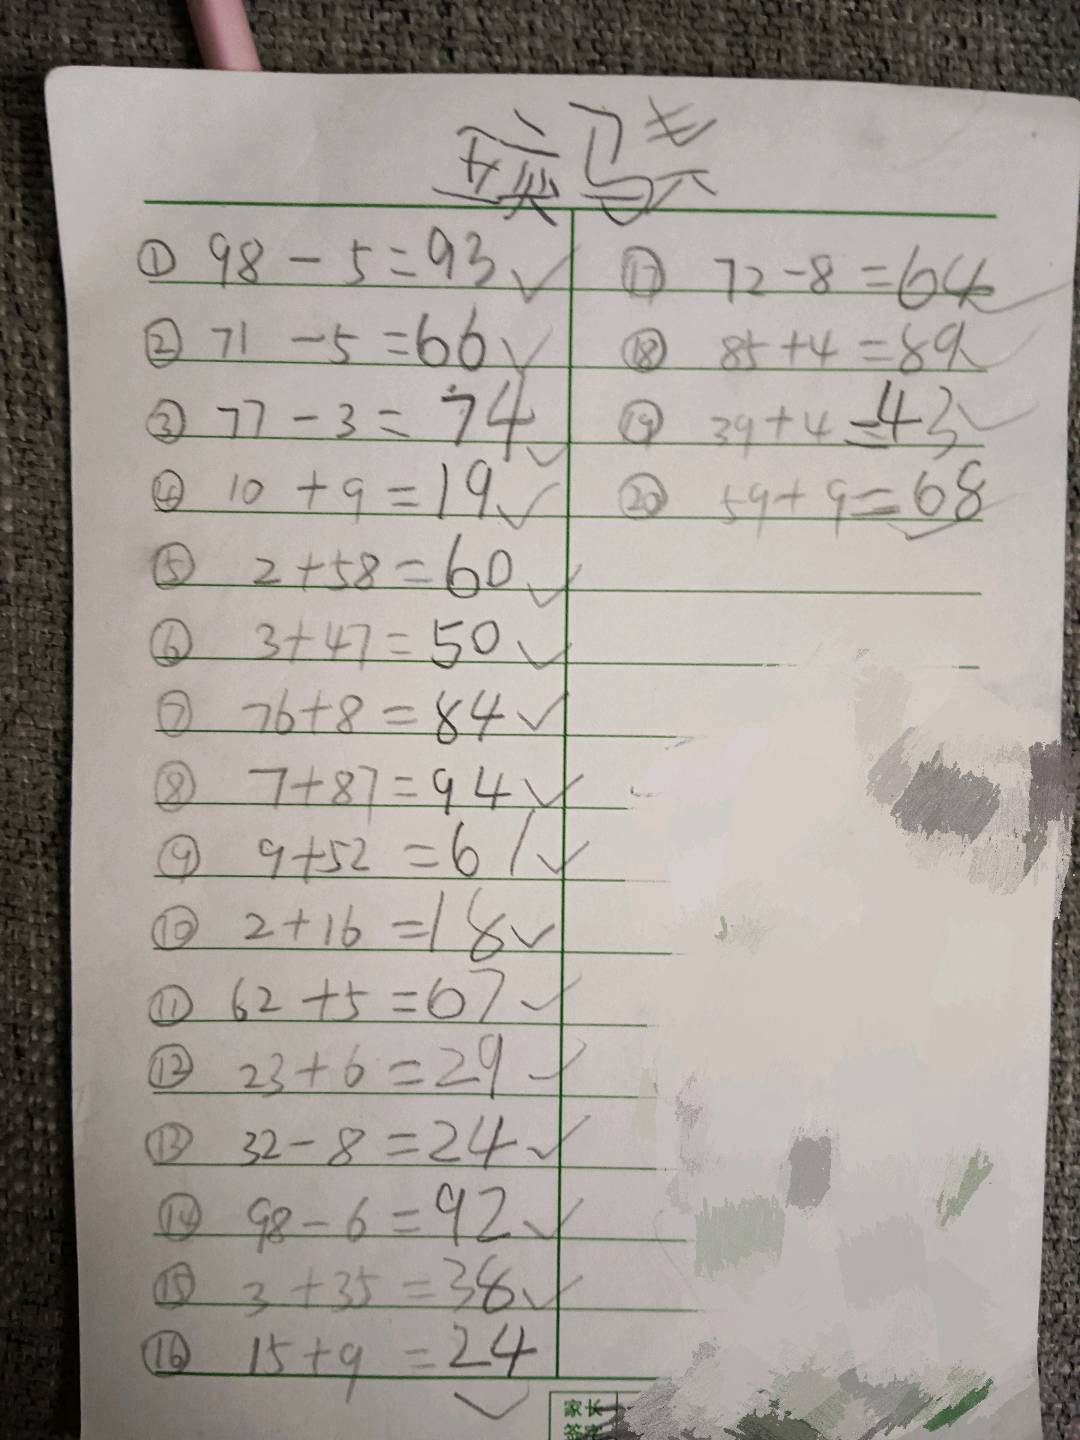 ① 98 - 5 = 93
② 71 - 5 = 66
③ 77 - 3 = 74
④ 10 + 9 = 19
⑤ 2 + 58 = 60
⑥ 3 + 47 = 50
⑦ 76 + 8 = 84
⑧ 7 + 87 = 94
⑨ 9 + 52 = 61
⑩ 2 + 16 = 18
⑪ 62 + 5 = 67
⑫ 23 + 6 = 29
⑬ 32 - 8 = 24
⑭ 98 - 6 = 92
⑮ 3 + 35 = 38
⑯ 15 + 9 = 24
⑰ 72 - 8 = 64
⑱ 85 + 4 = 89
⑲ 39 + 4 = 43
⑳ 59 + 9 = 68
家长
签字